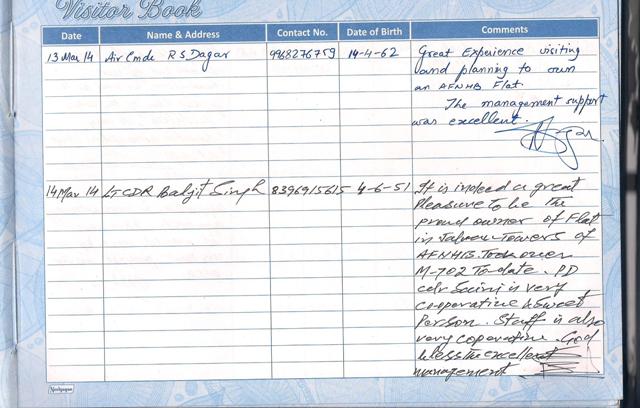 Visitor Book
Date Name & Address Contact No. Date of Birth Comments
13 Mar 14 Air Cmde R S Dagar 9968276759 14-4-62 Great Experience visiting
and planning to own
an AFNHB Flat.
The management support
was excellent.
14 Mar 14 LT CDR Baljit Singh 8396915615 4-6-51 It is indeed a great
Pleasure to be The
proud owner of Flat
in Towers of
AFNHB. Took over
M-702 To date. PD
cdr Saini is very
co-operative & Sweet
Person. Staff is also
very coperative. God
bless the excellent
management.